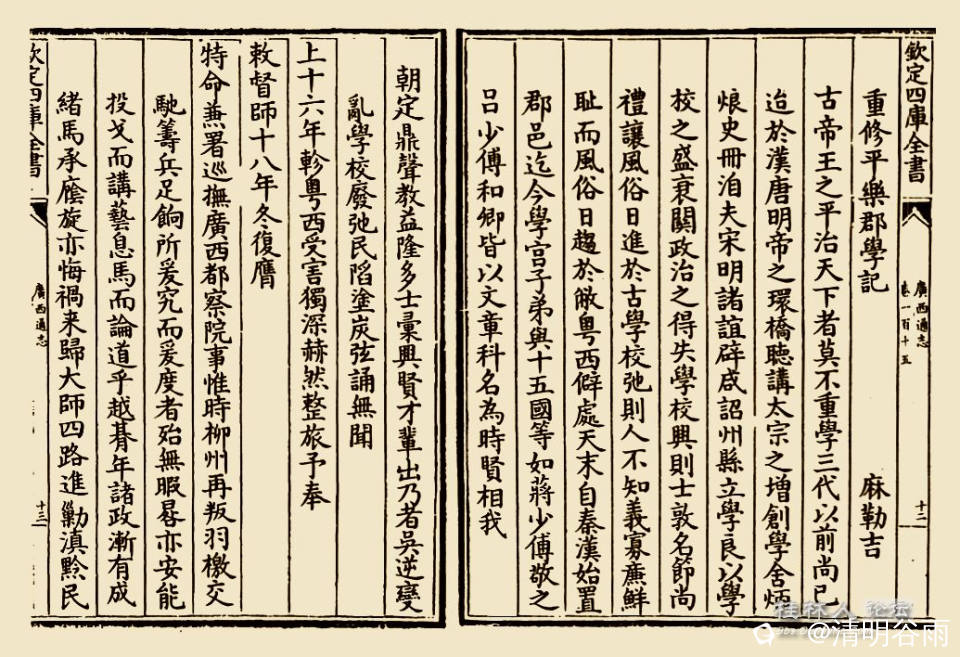 欽定四庫全書
廣西通志
卷一百十五
十二
重修平樂郡學記 麻勒吉
古帝王之平治天下者莫不重學三代以前尚已
迨於漢唐明帝之環橋聽講太宗之增創學舍炳
烺史冊洎夫宋明諸誼辟咸詔州縣立學良以學
校之盛衰關政治之得失學校興則士敦名節尚
禮讓風俗日進於古學校弛則人不知義寡亷鮮
耻而風俗日趨於敝粤西僻處天末自秦漢始置
郡邑迄今學宫子弟與十五國等如蔣少傅敬之
吕少傅和卿皆以文章科名為時賢相我
朝定鼎聲教益隆多士彙興賢才輩出乃者吳逆變
亂學校廢弛民䧟塗炭弦誦無聞
上十六年軫粤西受害獨深赫然整旅予奉
敕督師十八年冬復膺
特命兼署巡撫廣西都察院事惟時柳州再叛羽檄交
馳籌兵足餉所爰究而爰度者殆無暇晷亦安能
投戈而講藝息馬而論道乎越朞年諸政漸有成
緒馬承廕旋亦悔禍来歸大師四路進勦滇黔民
欽定四庫全書
廣西通志
十三
桂林人论坛
@清明谷雨